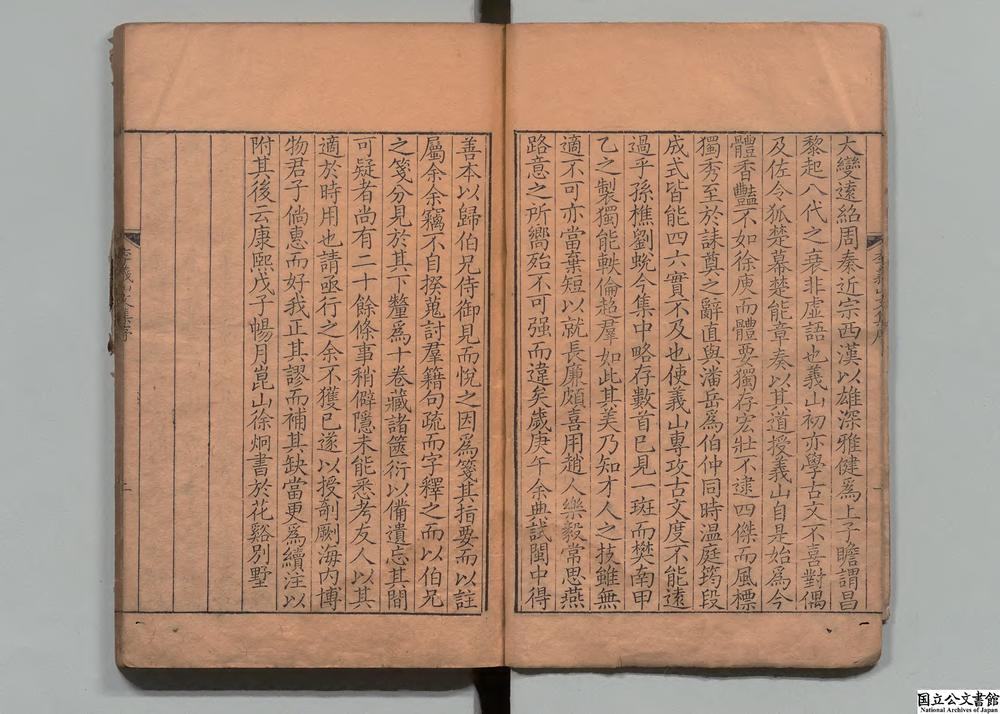 大變遠紹周秦近宗西漢以雄深雅健爲上子瞻謂昌
黎起八代之衰非虛語也義山初亦學古文不喜對偶
及佐令狐楚幕楚能章奏以其道授義山自是始爲今
體香豔不如徐庾而體要獨存宏壯不逮四傑而風標
獨秀至於誄奠之辭直與潘岳爲伯仲同時温庭筠段
成式皆能四六實不及也使義山專攻古文度不能遠
過乎孫樵劉蛻今集中略存數首已見一斑而樊南甲
乙之製獨能軼倫超羣如此其美乃知才人之技雖無
適不可亦當棄短以就長廉頗喜用趙人樂毅常思燕
路意之所嚮殆不可强而違矣歲庚午余典試閩中得
善本以歸伯兄侍御見而悅之因爲箋其指要而以註
屬余余竊不自揆蒐討羣籍句疏而字釋之而以伯兄
之箋分見於其下釐爲十卷藏諸篋衍以備遺忘其間
可疑者尚有二十餘條事稍僻隱未能悉考友人以其
適於時用也請亟行之余不獲已遂以授剞劂海内博
物君子倘惠而好我正其謬而補其缺當更爲續注以
附其後云康熙戊子暢月崑山徐炯書於花谿別墅
国立公文書館
National Archives of Japan